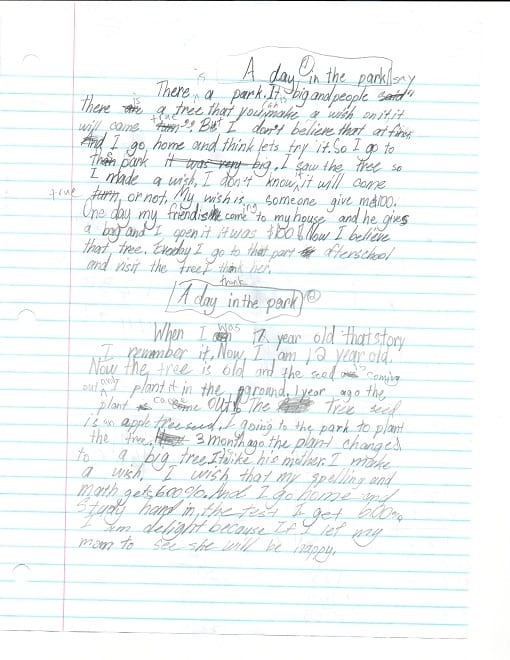 A day in the park ① say
There is a park. It big and people
there is a tree that you can make a wish on it it
will came true". But I don't believe that at first.
And I go home and think lets try it. So I go to
the park. I saw the tree so
I made a wish, I don't know it will come
true or not. My wish is, someone give me $100.
One day my friend is coming to my house and he gives
a bag and I open it it was $100! Now I believe
that tree. Everyday I go to that park afterschool
and visit the tree I thank her.
thank
A day in the park ②
When I was 7 year old that story
I remember it, Now, I am 12 year old.
Now the tree is old and the seed is coming
out and I plant it in the ground. 1 year ago the
plant come out. The tree seed
is an apple tree seed. I going to the park to plant
the tree. 3 month ago the plant changed
to a big tree. It like his mother. I make
a wish. I wish that my spelling and
math gets 600%. And I go home and
Study hard in the test I get 600%
I am delight because If I let my
mom to see she will be happy.